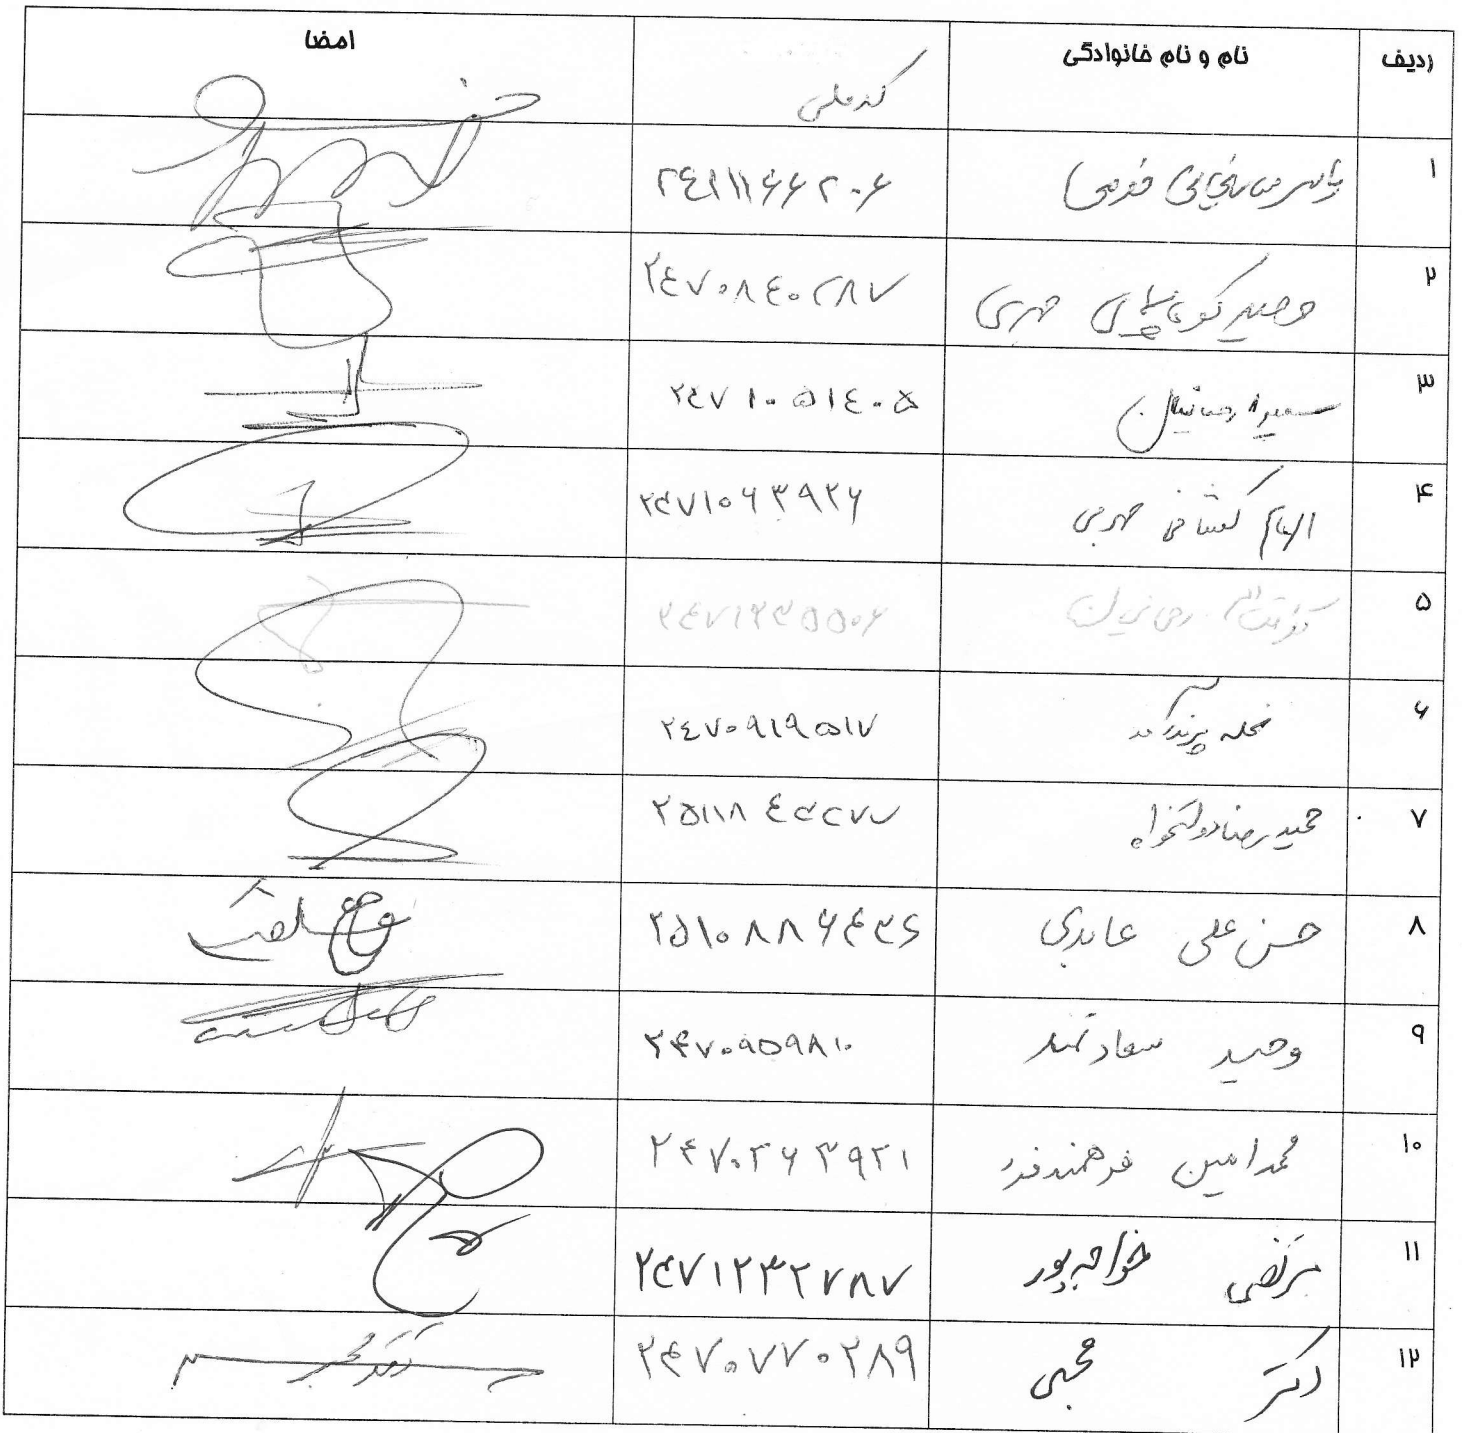 ردیف نام و نام خانوادگی کد ملی امضا
۱ ۲۴۲۱۱۶۶۲۰۶
۲ وحید مهری ۲۴۷۰۸۴۰۲۸۷
۳ سمیرا رحمانیان ۲۴۷۱۰۵۱۴۰۵
۴ الهام کشافی مهری ۲۴۷۱۰۶۳۹۲۶
۵ ۲۴۷۱۲۳۵۵۰۶
۶ نحله پرندآمد ۲۴۷۰۹۱۹۵۱۷
۷ حمیدرضا دولتخواه ۲۵۱۱۸
۸ حسن علی عابدی ۲۵۱۰۸۸۶۴۳۶
۹ وحید سعادتمند ۲۴۷۰۹۵۹۸۱۰
۱۰ محمد امین فرهمندفرد ۲۴۷۰۲۶۳۹۲۱
۱۱ مرتضی خواجه‌پور ۲۴۷۱۲۳۲۷۸۷
۱۲ دکتر محبی ۲۴۷۰۷۷۰۲۸۹